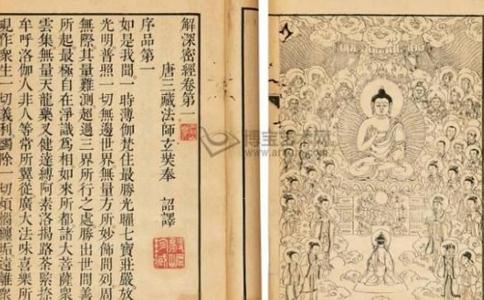 解深密經卷第一
唐三藏法師玄奘奉 詔譯
序品第一
如是我聞一時薄伽梵住最勝光曜七寶莊嚴放
光明普照一切世界無量方所妙飾間列周
無際其量難測超過三界所行之處勝出世間善
所起最極自在淨識為相如來所都諸大菩薩衆
雲集無量天龍藥叉健達縛阿素洛揭路荼緊捺
牟呼洛伽人非人等常所翼從廣大法味喜樂所
現作衆生一切義利蠲除一切煩惱纏垢遠離衆
博宝艺术网